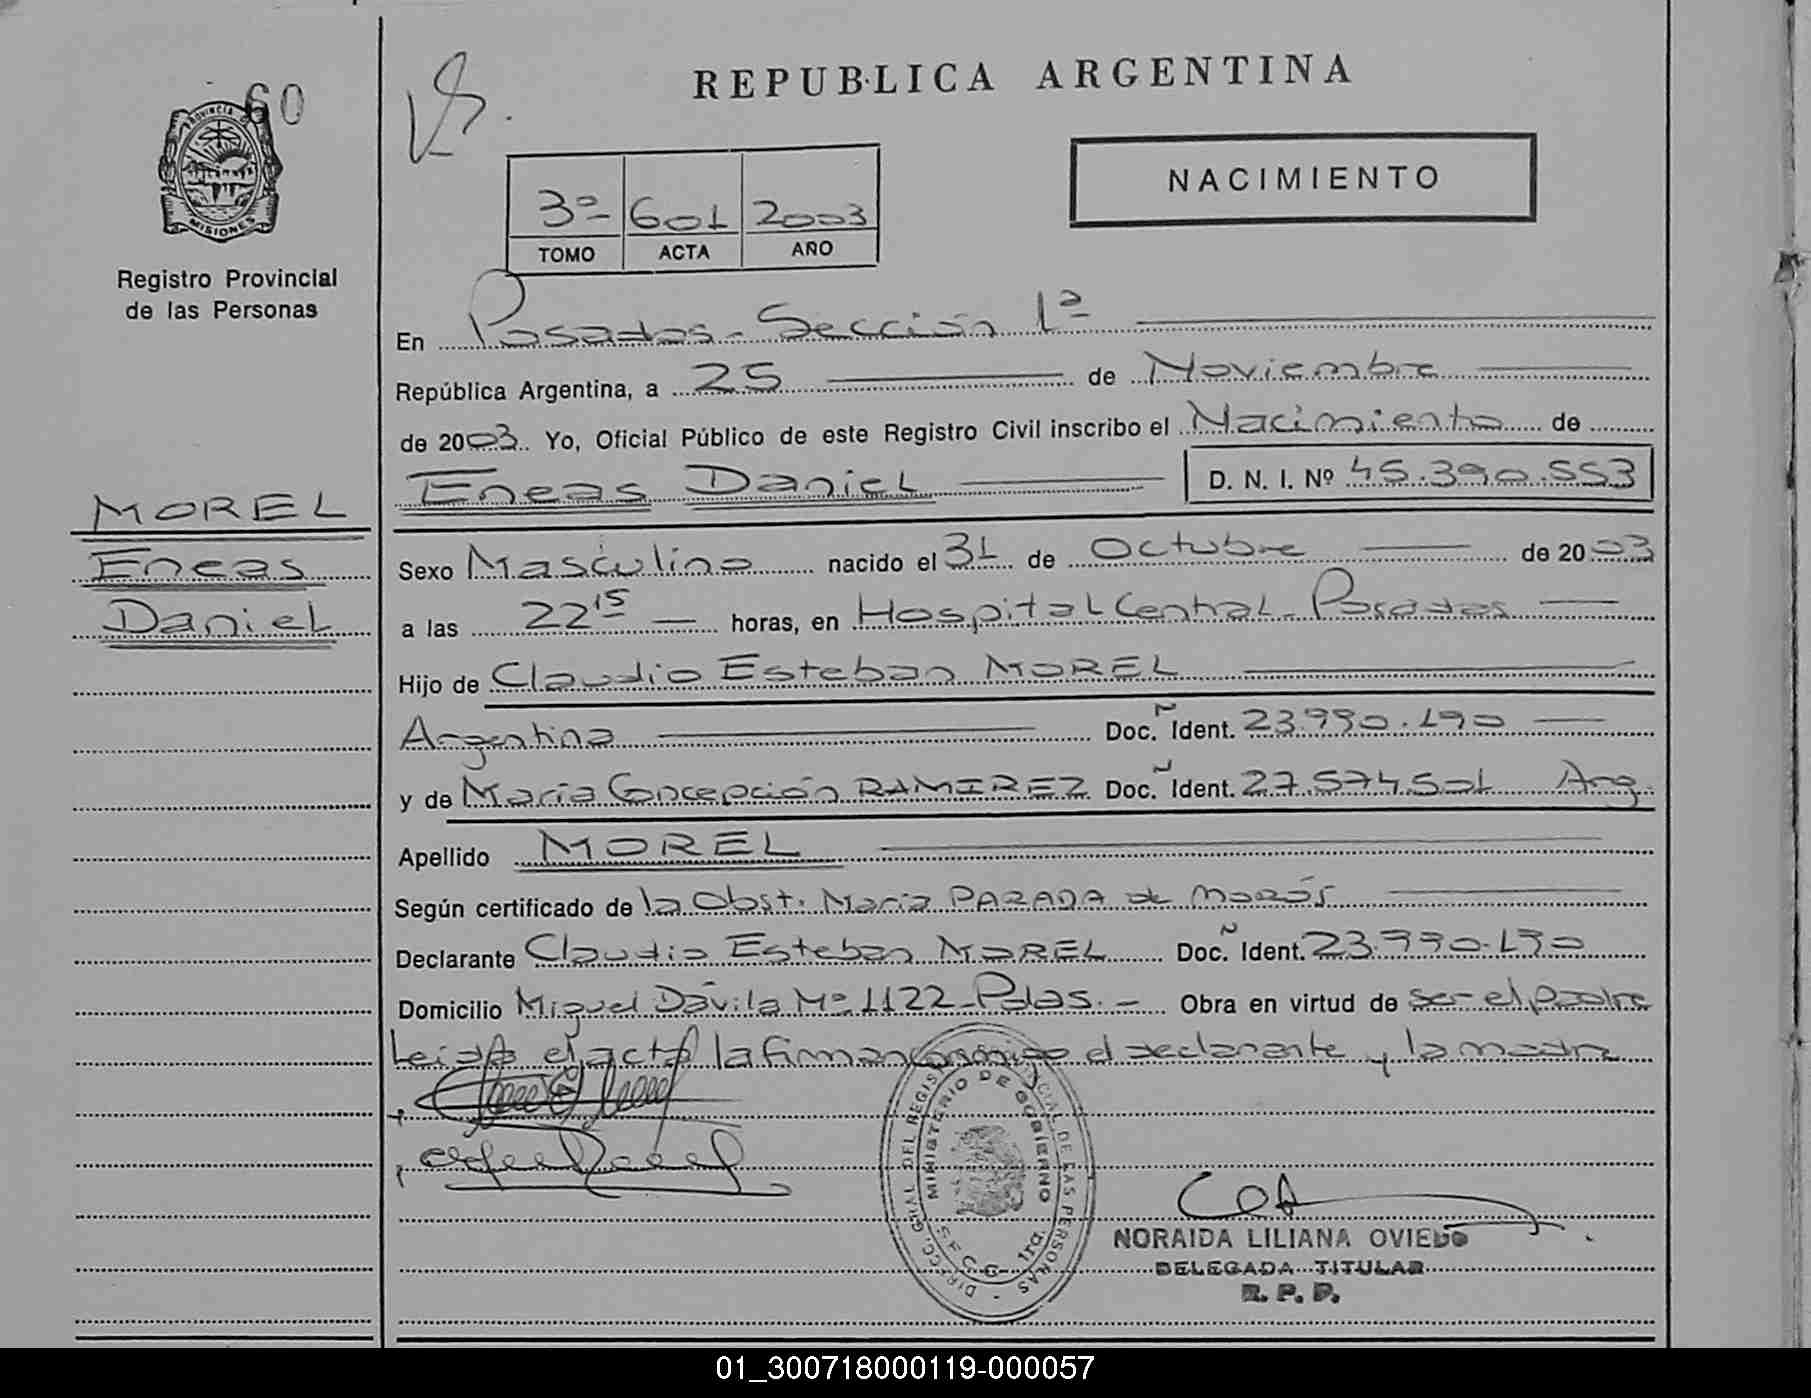 60
PROVINCIA DE
MISIONES
Registro Provincial
de las Personas
MOREL
Eneas
Daniel
REPUBLICA ARGENTINA
NACIMIENTO
3º 601 2003
TOMO ACTA AÑO
En Posadas - Sección 1ª
República Argentina, a 25 de Noviembre
de 2003. Yo, Oficial Público de este Registro Civil inscribo el Nacimiento de
Eneas Daniel D. N. I. Nº 45.390.553
Sexo Masculino nacido el 31 de Octubre de 2003
a las 22 15 horas, en Hospital Central - Posadas
Hijo de Claudio Esteban MOREL
Argentina Doc. Ident. 23.990.190
y de María Concepción RAMIREZ Doc. Ident. 27.574.501 Arg.
Apellido MOREL
Según certificado de la Obst. María PARADA de
Declarante Claudio Esteban MOREL Doc. Ident. 23.990.190
Domicilio Miguel Dávila Nº 1122 - Pdas. - Obra en virtud de ser el padre
Leida el acta la firman conmigo el declarante y la madre
DIRECC. GRAL. DEL REGISTRO PROVINCIAL DE LAS PERSONAS
MINISTERIO DE GOBIERNO
SECC. 1ra.
NORAIDA LILIANA OVIEDO
DELEGADA TITULAR
R. P. P.
01_300718000119-000057